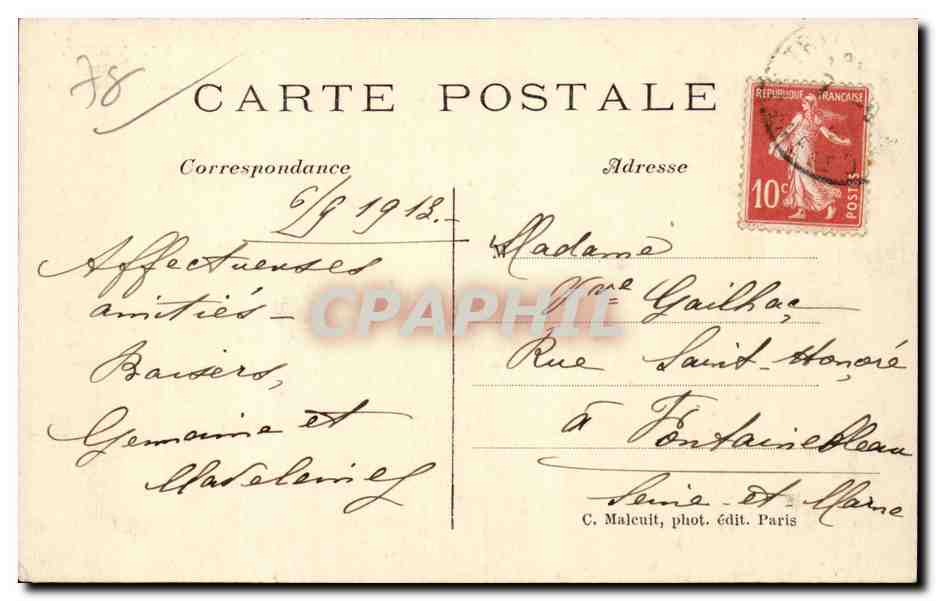 78
CARTE POSTALE
Correspondance
Adresse
RÉPUBLIQUE FRANÇAISE
10c
POSTES
6/9 1913.-
Affectueuses
amitiés-
Baisers,
Germaine et
Madeleine
Madame
Vve Gailhac
Rue Saint-Honoré
à Fontainebleau
Seine-et-Marne
C. Malcuit, phot. édit. Paris
CPAPHIL